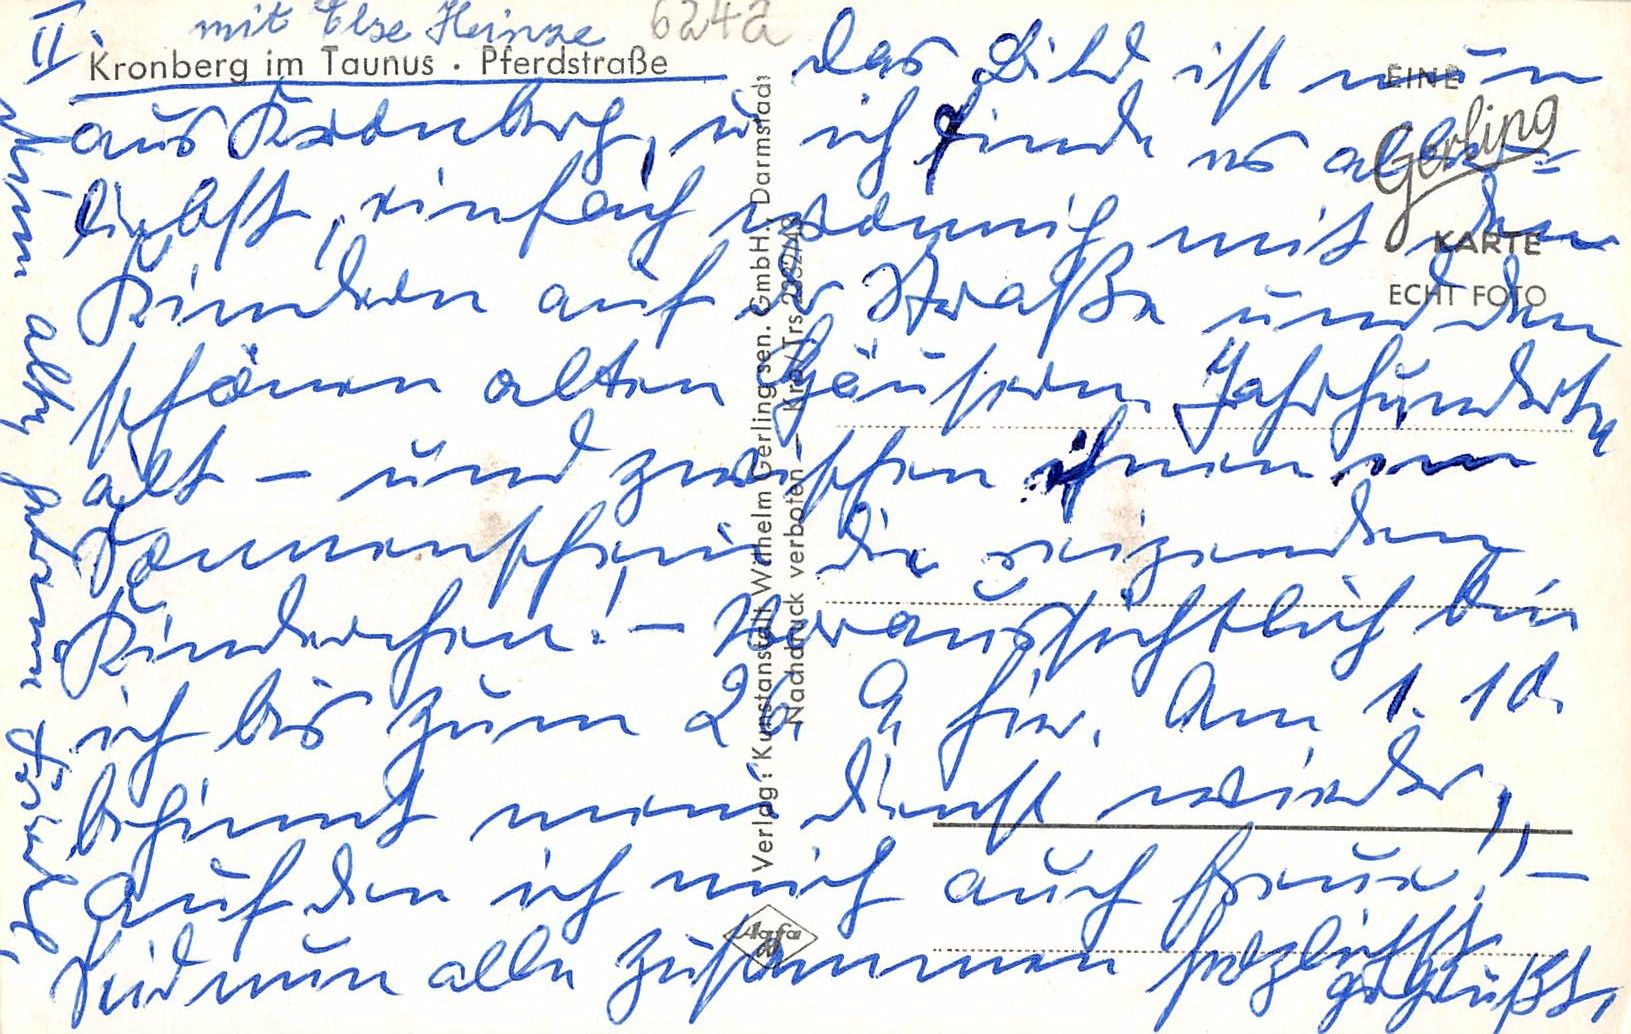 II.
mit Else Heinze 624a
Kronberg im Taunus · Pferdstraße
Das Bild ist nun
aus Kronberg, u. ich finde es aller=
liebst, einfach wonnig mit den
Kindern auf der Straße und den
schönen alten Häusern. Jahrhunderte
alt – und zwischen ihnen im
Sonnenschein die reizenden
Kinderchen! – Voraussichtlich bin
ich bis zum 26. 9. hier. Am 1. 10.
beginnt mein Dienst wieder,
auf den ich mich auch freue! –
Seid nun alle zusammen herzlichst
gegrüßt,
Verlag: Kunstanstalt Wilhelm Gerling sen. GmbH., Darmstadt
Nachdruck verboten – Kro/Trs
EINE
Gerling
KARTE
ECHT FOTO
Agfa